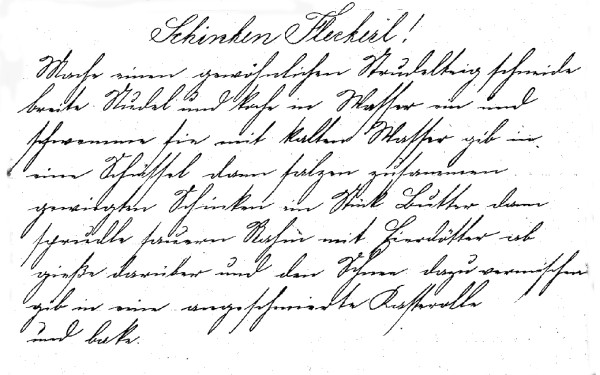 Schinken Fleckerl!
Mache einen gewöhnlichen Strudelteig schneide
breite Nudel und koche in Wasser ein und
schwemme sie mit kalten Wasser gib in
eine Schüssel dann salzen zusammen
gewiegten Schinken ein Stük Butter dann
sprudle sauern Rahm mit Eierdötter ab
gieße darüber und den Schnee dazu vermischen
gib in eine angeschmierte Kasserolle
und bake.